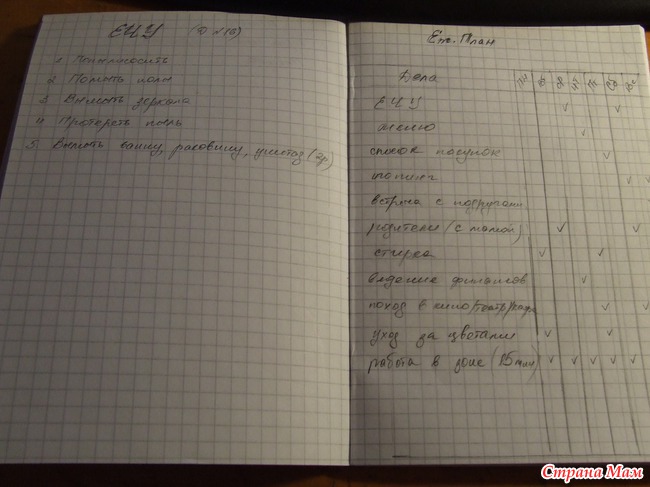 ЕЦУ (D N16)
1 Пропылесосить
2 Помыть полы
3 Вымыть зеркала
4 Протереть пыль
5 Вымыть ванну, раковину, унитаз (2р)
Еж. План
Дела Пн Вт Ср Чт Пт Сб Вс
ЕЦУ ✓ ✓
меню ✓
список покупок ✓
шопинг ✓ ✓
встреча с подругами
родители (с мамой) ✓ ✓
стирка ✓ ✓
ведение финансов ✓
поход в кино/театр/кафе ✓ ✓
уход за цветами ✓ ✓
работа в зоне (15 мин) ✓ ✓ ✓ ✓ ✓ ✓
Страна Мам